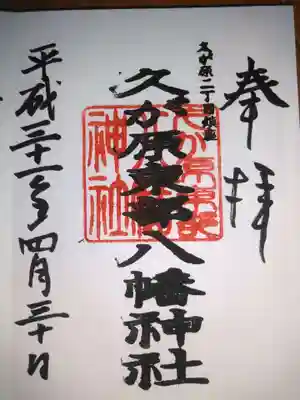 奉拝
久が原二丁目鎮座
久が原東部八幡神社
平成三十一年四月三十日